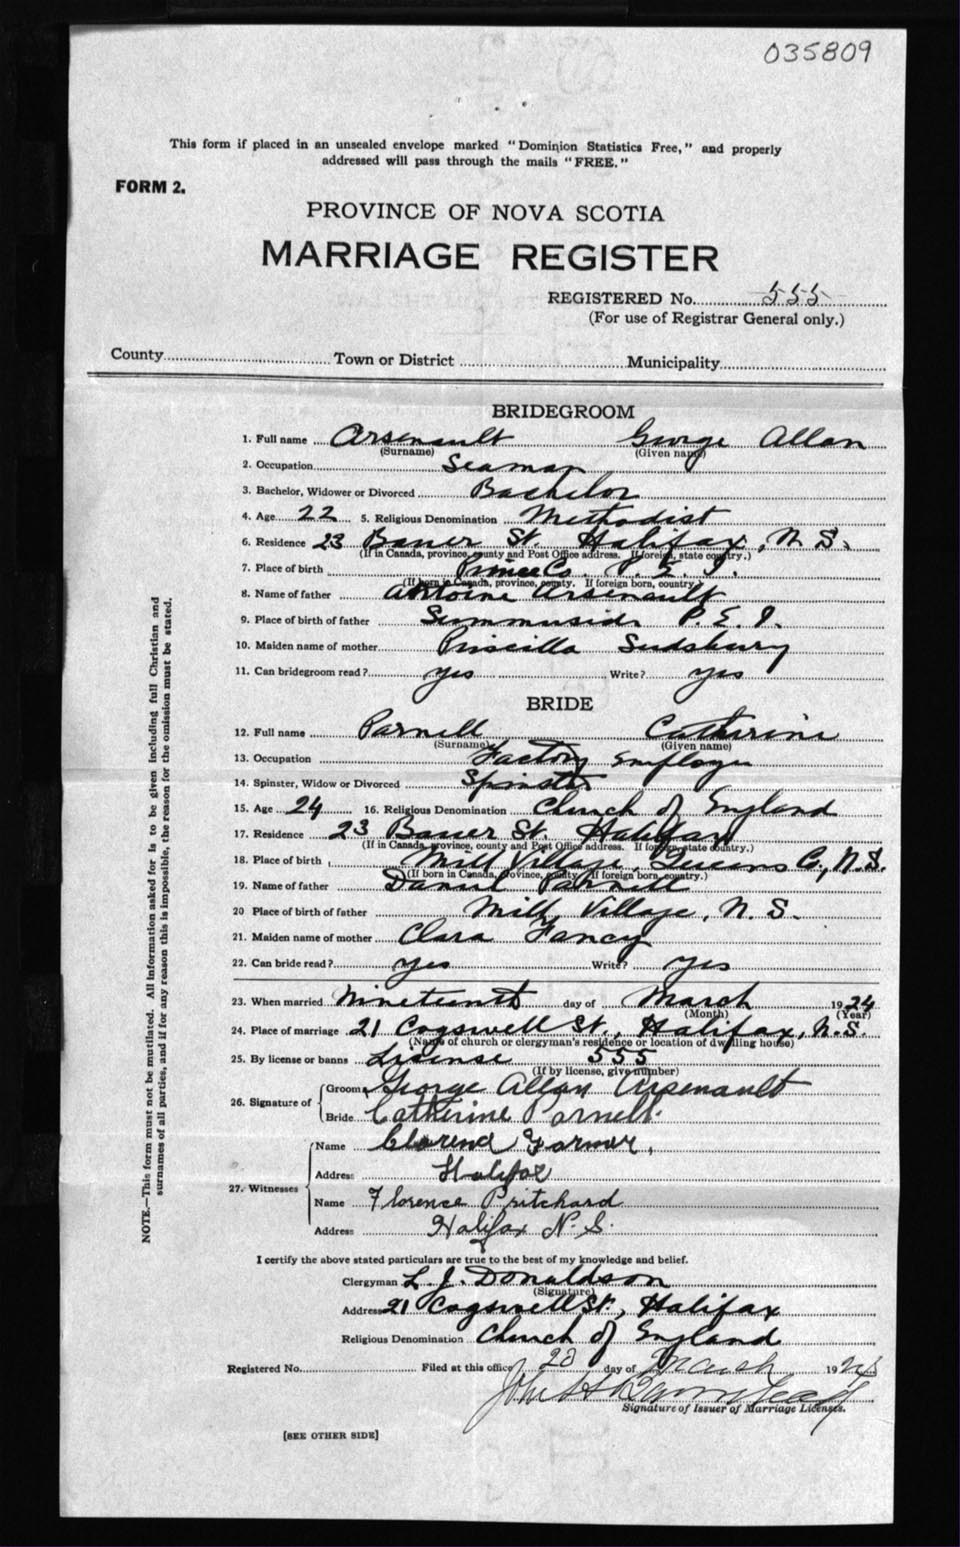 035809
This form if placed in an unsealed envelope marked "Dominion Statistics Free," and properly
addressed will pass through the mails "FREE."
FORM 2.
PROVINCE OF NOVA SCOTIA
MARRIAGE REGISTER
REGISTERED No. 555
(For use of Registrar General only.)
County Town or District Municipality
BRIDEGROOM
1. Full name Arsenault George Allan
(Surname) (Given name)
2. Occupation Seaman
3. Bachelor, Widower or Divorced Bachelor
4. Age 22 5. Religious Denomination Methodist
6. Residence 23 Bauer St. Halifax, N.S.
(If in Canada, province, county and Post Office address. If foreign, state country.)
7. Place of birth Prince Co. P.E.I.
(If born in Canada, province, county. If foreign born, country.)
8. Name of father Antoine Arsenault
9. Place of birth of father Summerside P.E.I.
10. Maiden name of mother Priscilla Sudsbury
11. Can bridegroom read? yes Write? yes
BRIDE
12. Full name Parnell Catherine
(Surname) (Given name)
13. Occupation Factory Employee
14. Spinster, Widow or Divorced Spinster
15. Age 24 16. Religious Denomination Church of England
17. Residence 23 Bauer St. Halifax
(If in Canada, province, county and Post Office address. If foreign, state country.)
18. Place of birth Mill Village, Queens Co., N.S.
(If born in Canada, Province, county. If foreign born, country.)
19. Name of father Daniel Parnell
20 Place of birth of father Mill Village, N.S.
21. Maiden name of mother Clara Fancy
22. Can bride read? yes Write? yes
23. When married Nineteenth day of March 1924
(Month) (Year)
24. Place of marriage 21 Cogswell St., Halifax, N.S.
(Name of church or clergyman's residence or location of dwelling house)
25. By license or banns License 555
(If by license, give number)
26. Signature of Groom George Allan Arsenault
Bride Catherine Parnell.
27. Witnesses Name Clarence Farmer,
Address Halifax
Name Florence Pritchard
Address Halifax N.S.
I certify the above stated particulars are true to the best of my knowledge and belief.
Clergyman L. J. Donaldson
(Signature)
Address 21 Cogswell St., Halifax
Religious Denomination Church of England
Registered No. Filed at this office 20 day of March 1924
Signature of Issuer of Marriage Licenses.
[SEE OTHER SIDE]
NOTE.—This form must not be mutilated. All information asked for is to be given including full Christian and
surnames of all parties, and if for any reason this is impossible, the reason for the omission must be stated.